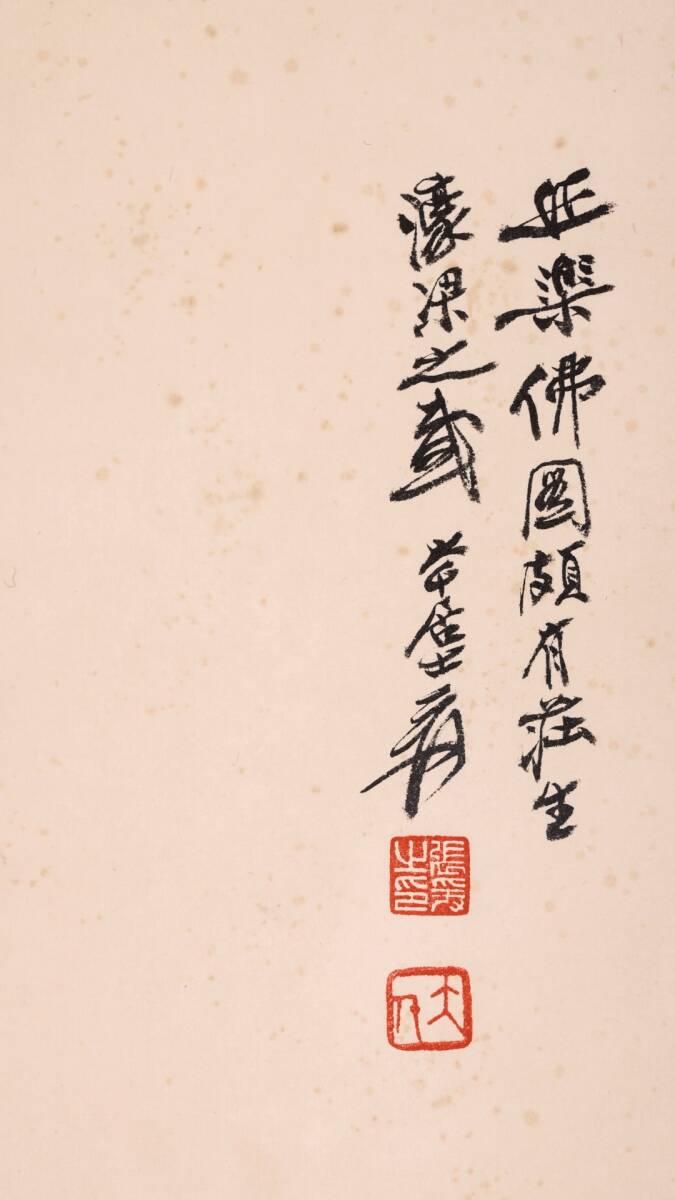 樂佛圖頗有莊生
濠梁之感 大千居士爰
張爰之印
大千